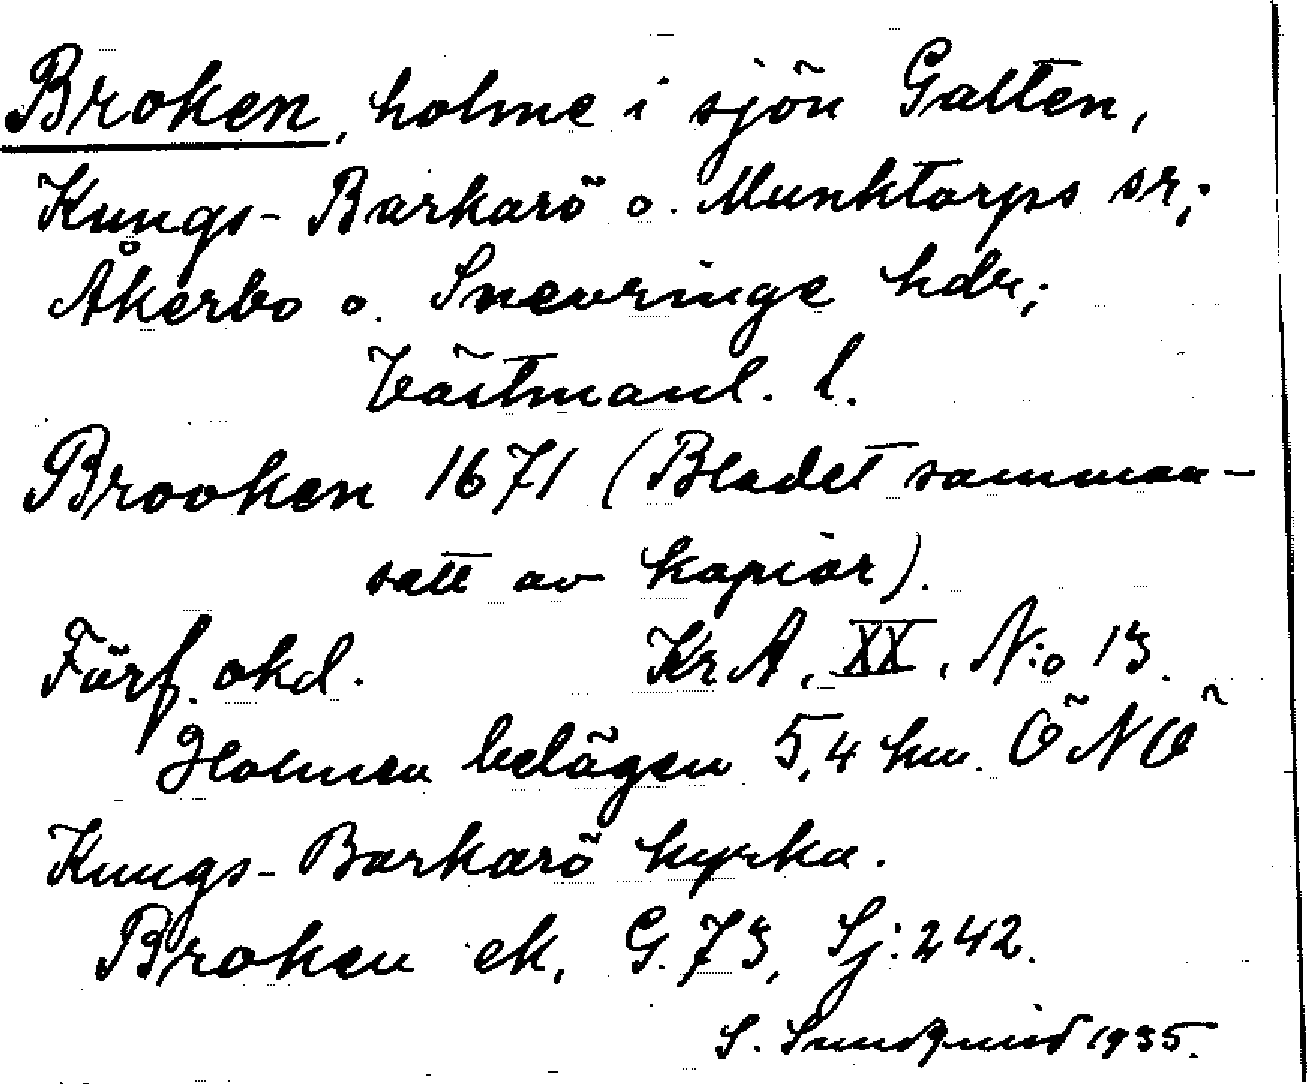 Broken, holme i sjön Galten,
Kungs-Barkarö o. Munktorps sr;
Åkerbo o. Snevringe hdr;
Västmanl. l.
Brooken 1671 (Bladet samman-
satt av kopior).
Förf. okd. Kr A, XX, N:o 13.
Holmen belägen 5,4 km. ÖNÖ
Kungs-Barkarö kyrka.
Broken ek. G. 73, Sj: 242.
S. Sundquist 1935.